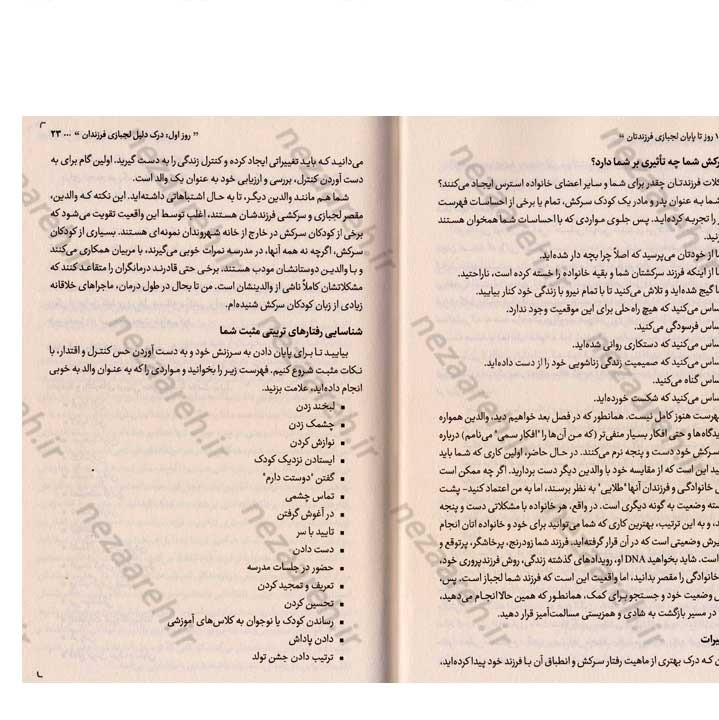 ۱ روز تا پایان لجبازی فرزندتان “
رکش شما چه تأثیری بر شما دارد؟
کلات فرزندتان چقدر برای شما و سایر اعضای خانواده استرس ایجاد می‌کنند؟
شما به عنوان پدر و مادر یک کودک سرکش، تمام یا برخی از احساسات فهرست
را تجربه کرده‌اید. پس جلوی مواردی که با احساسات شما همخوان هستند
نید.
ا از خودتان می‌پرسید که اصلاً چرا بچه دار شده‌اید.
ا از اینکه فرزند سرکشتان شما و بقیه خانواده را خسته کرده است، ناراحتید.
ا گیج شده‌اید و تلاش می‌کنید تا با تمام نیرو با زندگی خود کنار بیایید.
ساس می‌کنید که هیچ راه‌حلی برای این موقعیت وجود ندارد.
ساس فرسودگی می‌کنید.
ساس می‌کنید که دستکاری روانی شده‌اید.
ساس می‌کنید که صمیمیت زندگی زناشویی خود را از دست داده‌اید.
ساس گناه می‌کنید.
ساس می‌کنید که شکست خورده‌اید.
فهرست هنوز کامل نیست. همانطور که در فصل بعد خواهیم دید، والدین همواره
یدگاه‌ها و حتی افکار بسیار منفی‌تر (که من آن‌ها را "افکار سمی" می‌نامم) درباره
سرکش خود دست و پنجه نرم می‌کنند. در حال حاضر، اولین کاری که شما باید
ید این است که از مقایسه خود با والدین دیگر دست بردارید. اگر چه ممکن است
ی خانوادگی و فرزندان آنها "طلایی" به نظر برسند، اما به من اعتماد کنید- پشت
سته وضعیت به گونه دیگری است. در واقع، هر خانواده با مشکلاتی دست و پنجه
، و به این ترتیب، بهترین کاری که شما می‌توانید برای خود و خانواده اتان انجام
یرش وضعیتی است که در آن قرار گرفته‌اید. فرزند شما زودرنج، پرخاشگر، پرتوقع و
است. شاید بخواهید DNA او، رویدادهای گذشته زندگی، روش فرزندپروری خود،
خانوادگی را مقصر بدانید، اما واقعیت این است که فرزند شما لجباز است. پس،
ش وضعیت خود و جستجو برای کمک، همانطور که همین حالا انجام می‌دهید،
در مسیر بازگشت به شادی و همزیستی مسالمت‌آمیز قرار دهید.
یرات
ن که درک بهتری از ماهیت رفتار سرکش و انطباق آن با فرزند خود پیدا کرده‌اید،
” روز اول: درک دلیل لجبازی فرزندان “ ... ۲۳
می‌دانید که باید تغییراتی ایجاد کرده و کنترل زندگی را به دست گیرید. اولین گام برای به
دست آوردن کنترل، بررسی و ارزیابی خود به عنوان یک والد است.
شما هم مانند والدین دیگر، تا به حال اشتباهاتی داشته‌اید. این نکته که والدین،
مقصر لجبازی و سرکشی فرزندشان هستند، اغلب توسط این واقعیت تقویت می‌شود که
برخی از کودکان سرکش در خارج از خانه شهروندان نمونه‌ای هستند. بسیاری از کودکان
سرکش، اگرچه نه همه آنها، در مدرسه نمرات خوبی می‌گیرند، با مربیان همکاری می‌کنند
و با والدین دوستانشان مودب هستند. برخی حتی قادرند درمانگران را متقاعد کنند که
مشکلاتشان کاملاً ناشی از والدینشان است. من تا بحال در طول درمان، ماجراهای خلاقانه
زیادی از زبان کودکان سرکش شنیده‌ام.
شناسایی رفتارهای تربیتی مثبت شما
بیایید تا برای پایان دادن به سرزنش خود و به دست آوردن حس کنترل و اقتدار، با
نکات مثبت شروع کنیم. فهرست زیر را بخوانید و مواردی را که به عنوان والد به خوبی
انجام داده‌اید، علامت بزنید.
▪ لبخند زدن
▪ چشمک زدن
▪ نوازش کردن
▪ ایستادن نزدیک کودک
▪ گفتن "دوستت دارم"
▪ تماس چشمی
▪ در آغوش گرفتن
▪ تایید با سر
▪ دست دادن
▪ حضور در جلسات مدرسه
▪ تعریف و تمجید کردن
▪ تحسین کردن
▪ رساندن کودک یا نوجوان به کلاس‌های آموزشی
▪ دادن پاداش
▪ ترتیب دادن جشن تولد
nezaareh.ir